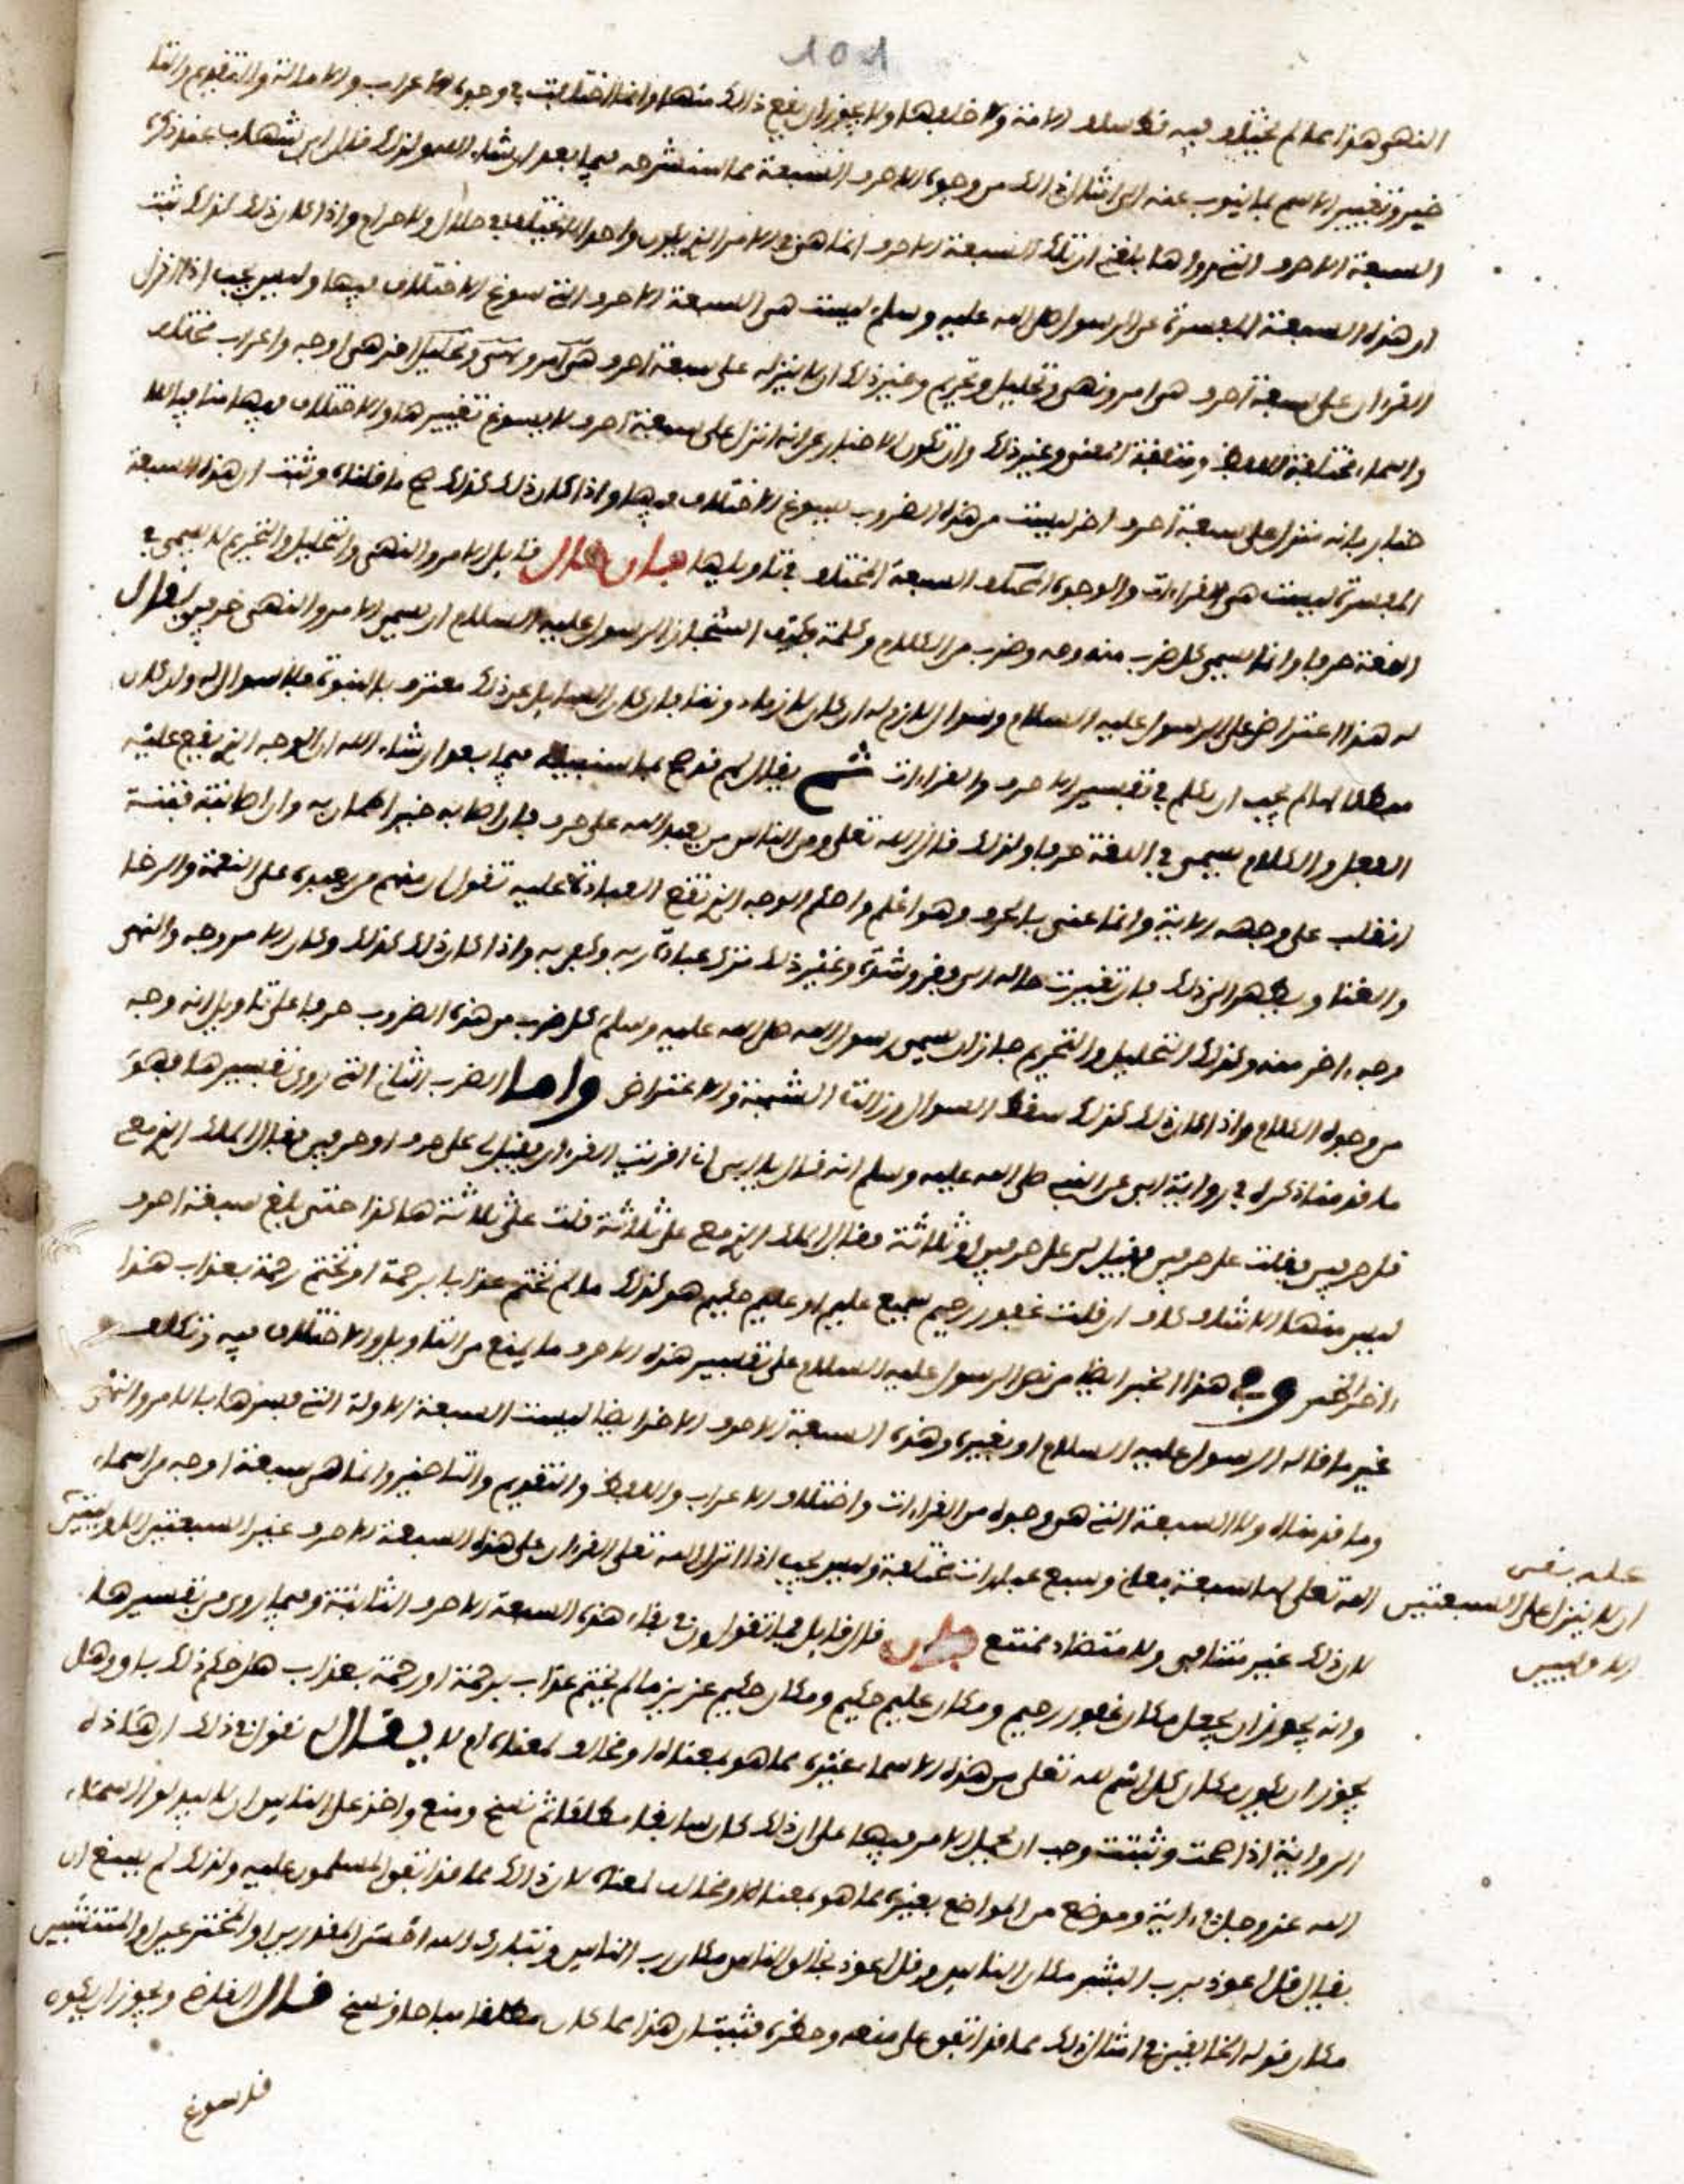 101
النهي هذا مما لم يختلف فيه تملا سلف الامة ولا خلفها ولا يجوز ان يقع ذلك منها وانما اختلفت في وجوه الاعراب والامالة والتقديم والتا
خير وتغيير الاسم بما ينوب عنه الى امثال ذلك من وجوه الاحرف السبعة مما سنشرحه فيما بعد ان شاء الله ولذلك قال ابن شهاب عند ذكره
السبعة الاحرف التي رواها بلغني ان تلك السبعة الاحرف انما هي في الامر الذي يكون واحدا لا يختلف في حلال ولا حرام واذا كان ذلك كذلك ثبت
ان هذه السبعة المفسرة عن الرسول صلى الله عليه وسلم ليست هي السبعة الاحرف التي سوغ الاختلاف فيها وليس يجب اذا انزل
القرءان على سبعة احرف هي امر ونهي وتحليل وتحريم وغير ذلك ان لا ينزله على سبعة احرف هي اخر هي اوجه واعراب مختلف
واسماء مختلفة اللفظ ومتفقة المعنى وغير ذلك وان تكون الاخبار عن انه انزل على سبعة احرف لا يسوغ تغييرها والاختلاف فيها منافيا للا
خبار بانه منزل على سبعة احرف اخر ليست من هذه الضروب يسوغ الاختلاف فيها واذا كان ذلك كذلك صح ما قلناه وثبت ان هذه السبعة
المفسرة ليست هي القراءات والوجوه السبعة المختلف في تاويلها فان قال قايل الامر والنهي والتحليل والتحريم لا يسمى في
اللغة حرفا وانما يسمى كل ضرب منه وجه وضرب من الكلام وكلمة فكيف استجاز الرسول عليه السلام ان يسمي الامر والنهي حرفين يقال
له هذا اعتراض على الرسول عليه السلام وسوال لازم له ان كان لازما دوننا فان كان السايل عن ذلك معترف بالنبوة فلا سوال له وان كان
مبطلا لها لم يجب ان يكلم في تفسير الاحرف والقراءات ثم يقال لهم قد صح بما سنبينه فيما بعد ان شاء الله ان الوجه الذي يقع عليه
الفعل والكلام يسمى في اللغة حرفا ولذلك قال الله تعلى ومن الناس من يعبد الله على حرف فان اصابه خير اطمان به وان اصابته فتنة
انقلب على وجهه الاية وانما عنى بالحرف وهو اعلم واحكم الوجه الذي تقع العبادة عليه تقول ان منهم من يعبده على النعمة والرخا
والغنا ويطمئن الى ذلك فان تغيرت حاله الى فقر وشدة وغير ذلك ترك عبادة ربه وكفر به واذا كان ذلك كذلك وكان الامر وجه والنهي
وجه اخر منه وكذلك التحليل والتحريم جاز ان يسمي رسول الله صلى الله عليه وسلم كل ضرب من هذه الضروب حرفا على تاويل انه وجه
من وجوه الكلام واذا كان ذلك كذلك سقط السوال وزالت الشبهة والاعتراض واما الضرب الثاني التي روى تفسيرها فهو
ما قدمنا ذكره في رواية ابي عن النبي صلى الله عليه وسلم انه قال يا ابي اني اقريت القرءان فقيل لي على حرف او حرفين فقال الملك الذي معي
قل حرفين فقلت على حرفين فقيل لي على حرفين او ثلاثة فقال الملك الذي معي على ثلاثة قلت على ثلاثة هاكذا حتى بلغ سبعة احرف
ليس منها الا شاف كاف ان قلت غفور رحيم سميع عليم او عليم حكيم هو كذلك ما لم تختم عذابا برحمة او تختم رحمة بعذاب هذا
اخر الخبر وفي هذا الخبر ايضا من نص الرسول عليه السلام على تفسير هذه الاحرف ما يمنع من التاويل والاختلاف فيه وتكلف
غير ما قاله الرسول عليه السلام او يغيره وهذه السبعة الاحرف الاخر ايضا ليست السبعة الاولة التي فسرها بالامر والنهي
وما قدمناه ولا السبعة التي هي وجوه من القراءات واختلاف الاعراب واللفظ والتقديم والتاخير وانما هي سبعة اوجه من اسماء
الله تعلى لها سبعة معان وسبع عبارات مختلفة وليس يجب اذا انزل الله تعلى القرءان على هذه السبعة الاحرف غير السبعتين الاوليين
ان لا ينزل على السبعتين الاوليين
لان ذلك غير متنافي ولا متضاد ممتنع فان قال قايل فما تقولون في بقاء هذه السبعة الاحرف الثانية وفيما روى من تفسيرها
وانه يجوز ان يجعل مكان غفور رحيم ومكان عليم حكيم ومكان حكيم عزيز ما لم يختم عذاب برحمة او رحمة بعذاب هل حكم ذلك باق وهل
يجوز ان يكون مكان كل اسم لله تعلى من هذه الاسماء غيره مما هو بمعناه او مخالف لمعناه ام لا يقال له نقول في ذلك ان هاذه
الرواية اذا صحت وثبتت وجب ان يحمل الامر فيها على ان ذلك كان سايغا مطلقا ثم نسخ ومنع واخذ على الناس ان لا يبدلوا اسماء
الله عز وجل في اية وموضع من المواضع بغيره مما هو بمعناه او مخالف لمعناه لان ذلك مما قد اتفق المسلمون عليه ولذلك لم يسغ ان
يقال قل اعوذ برب البشر مكان الناس وقل اعوذ بخالق الناس مكان رب الناس وتبارك الله احسن المقدرين او المخترعين او المنشئين
مكان قوله الخالقين في امثال ذلك مما قد اتفق على منعه وحظره فثبت ان هذا مما كان مطلقا مباحا ونسخ قال القاضي ويجوز ان يكون
قد سوغ